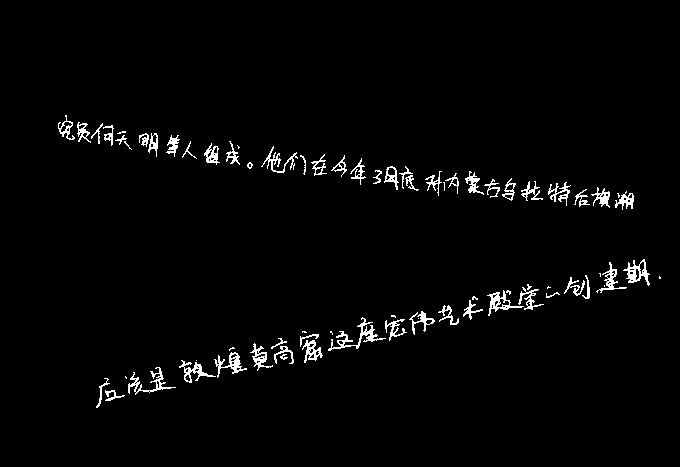 究员何天明等人组成。他们在今年3月底对内蒙古乌拉特后旗潮
应该是敦煌莫高窟这座宏伟艺术殿堂的创建期.